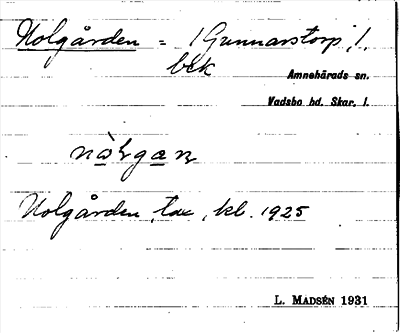 Nolgården = /Gunnarstorp, 1.
bek
Amnehärads sn.
Vadsbo hd. Skar. l.
Nolgården, kl. 1925
L. MADSÉN 1931